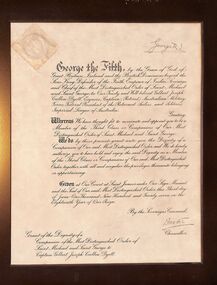 George R.I.
George the Fifth, by the Grace of God of
Great Britain, Ireland and the British Dominions beyond the
Seas King, Defender of the Faith, Emperor of India, Sovereign
and Chief of the Most Distinguished Order of Saint Michael
and Saint George to Our Trusty and Well beloved Gilbert Joseph
Cullen Dyett, Esquire, Captain Retired, Australian Military
Forces, Federal President of the Returned Sailors and Soldiers
Imperial League of Australia
Greeting
Whereas We have thought fit to nominate and appoint you to be a
Member of the Third Class or Companions of Our Most
Distinguished Order of Saint Michael and Saint George
We do by these presents grant unto you the Dignity of a
Companion of Our said Most Distinguished Order and We do hereby
authorise you to have hold and enjoy the said Dignity as a Member of
the Third Class or Companions of Our said Most Distinguished
Order together with all and singular the privileges thereunto belonging
or appertaining
Given at Our Court at Saint James's under Our Sign Manual
and the Seal of Our said Most Distinguished Order this Third day
of June One Thousand Nine Hundred and Twenty seven in the
Eighteenth Year of Our Reign
By the Sovereign's Command.
Chancellor.
Grant of the Dignity of a
Companion of the Most Distinguished Order of
Saint Michael and Saint George to
Captain Gilbert Joseph Cullen Dyett